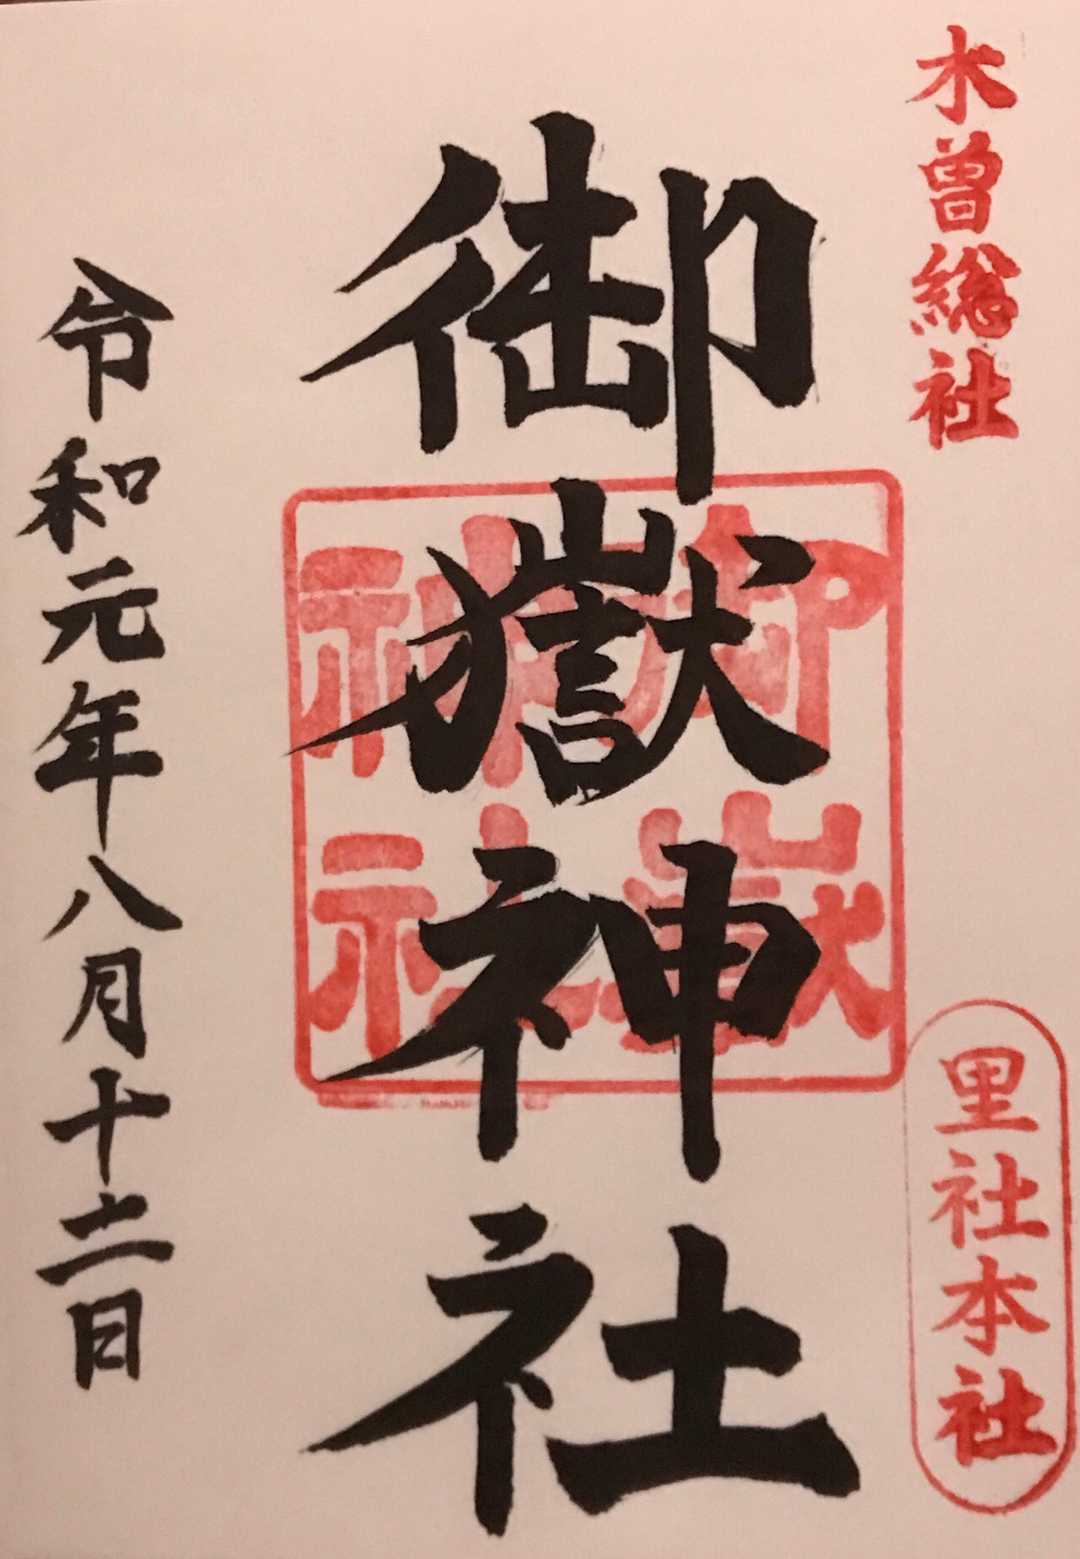 木曽総社
里社本社
御嶽神社
御嶽
神社
令和元年八月十二日